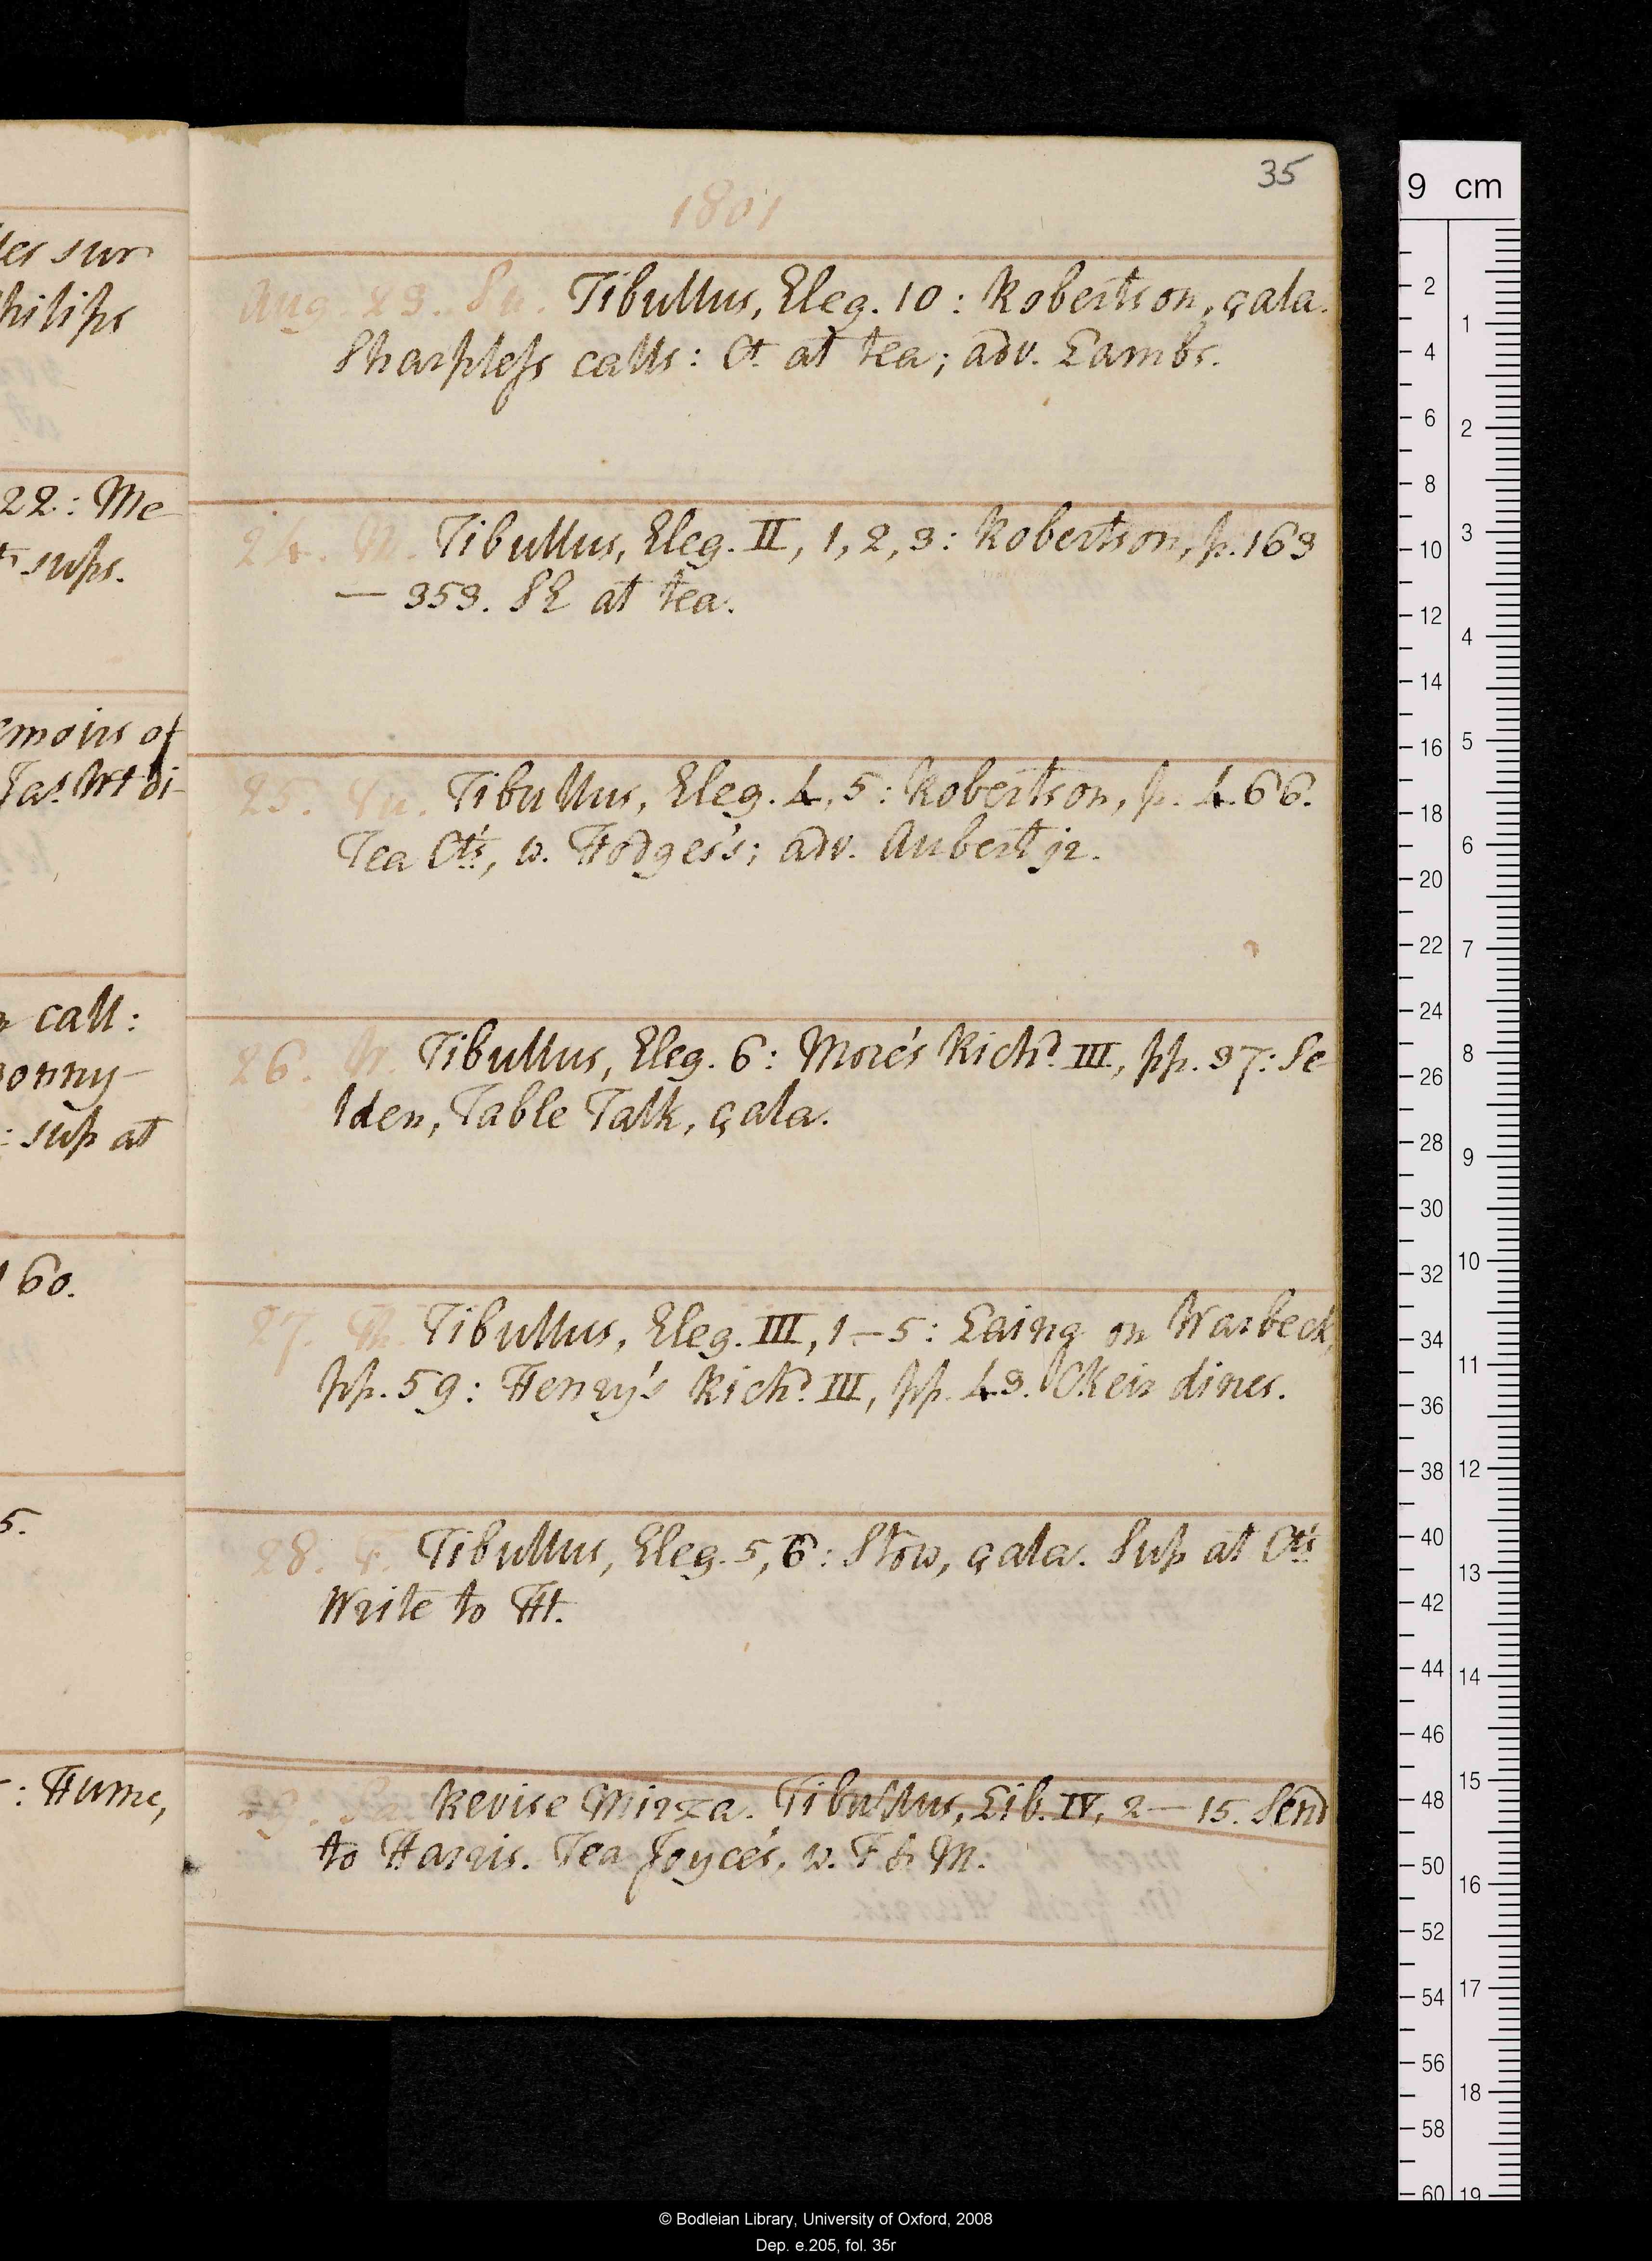 35
1801
Aug. 23. Su. Tibullus, Eleg. 10: Robertson, çala.
Sharpless calls: Ct. at tea; adv. Lambs.
24. M. Tibullus, Eleg. II, 1, 2, 3: Robertson, p. 163
— 353. SE at tea.
25. Tu. Tibullus, Eleg. 4, 5: Robertson, p. 466.
Tea Ct's, w. Hodges's; adv. Aubert jr.
26. W. Tibullus, Eleg. 6: More's Richd. III, pp. 37: Se-
lden, Table Talk, çala.
27. Th. Tibullus, Eleg. III, 1–5: Laing on Warbeck,
pp. 59: Henry's Richd. III, pp. 43. OKeir dines.
28. F. Tibullus, Eleg. 5, 6: Stow, çala. Sup at Ct's
Write to Ht.
29. Sa. Revise Mirza. Tibullus, Lib. IV, 2—15. Send
to Harris. Tea Joyce's, w. F & M.
les sur
hilips
22: Me-
sups.
emoirs of
di-
call:
onny-
: sup at
160.
5.
: Hume,
9 cm
2
4
6
8
10
12
14
16
18
20
22
24
26
28
30
32
34
36
38
40
42
44
46
48
50
52
54
56
58
60
1
2
3
4
5
6
7
8
9
10
11
12
13
14
15
16
17
18
19
© Bodleian Library, University of Oxford, 2008
Dep. e.205, fol. 35r